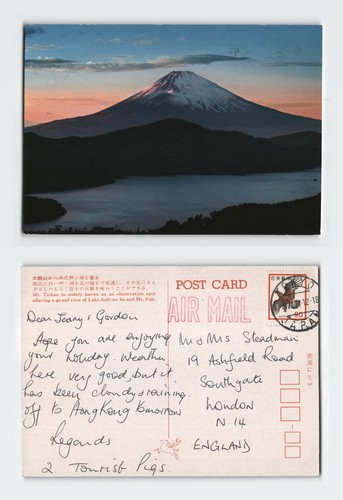 大観山からみた芦ノ湖と富士
Mt. Taikan is widely known as an observation spot
offering a grand view of Lake Ashi-no-ko and Mt. Fuji.
POST CARD
AIR MAIL
Dear Jenny & Gordon
Hope you are enjoying
your holiday. Weather
here very good, but it
has been cloudy & raining.
off to Hong Kong tomorrow
Regards
2 Tourist Pigs.
Mr & Mrs Steadman
19 Ashfield Road
Southgate
London
N.14
ENGLAND
JAPAN